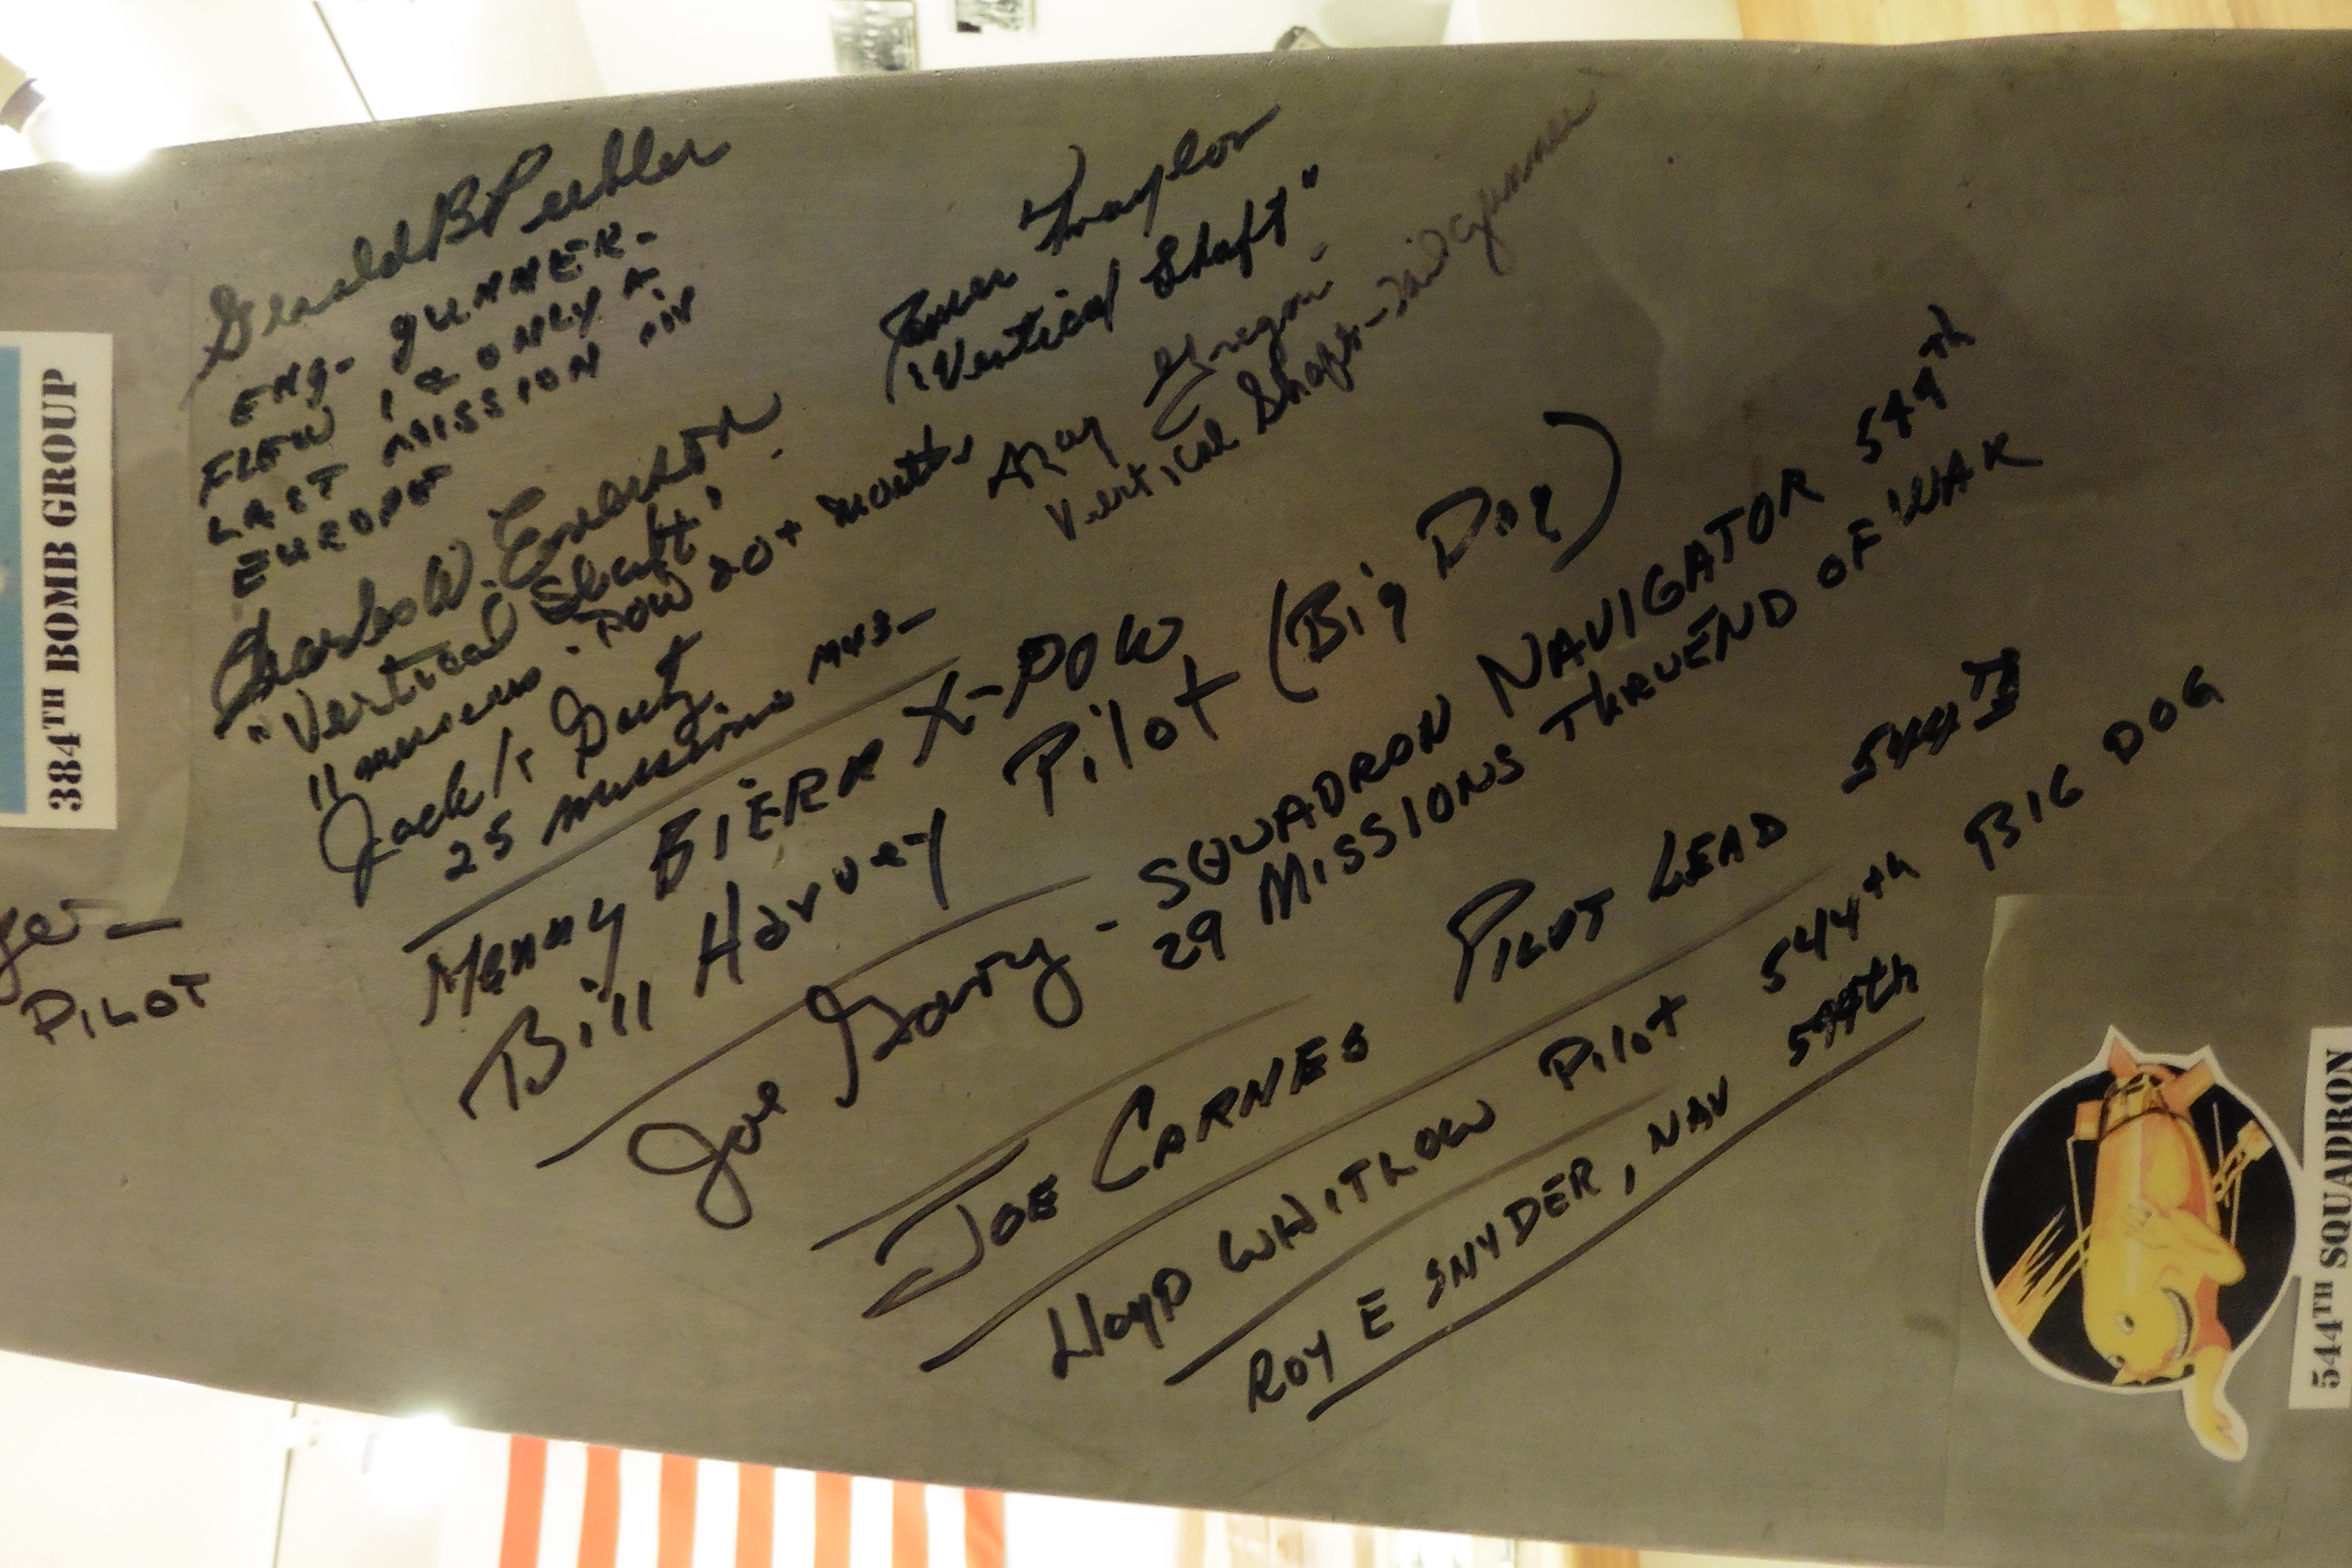 384TH BOMB GROUP
PILOT
Gerald B Peebler
ENG- gUNNER-
FLEW 1 & ONLY &
LAST MISSION IN
EUROPE
Charles W.
"Vertical Shaft"
11 POW 20+ months
Jack K
25 missions
Taylor
"Vertical Shaft"
Gregori
Vertical Shaft - Tail gunner
Manny BIERR X-POW
Bill Harvey Pilot (Big Dog)
Joe Gary - SQUADRON NAVIGATOR 544th
29 MISSIONS THRU END OF WAR
JOE CARNES PILOT LEAD 544TH
Lloyd WHITLOW Pilot 544th BIG DOG
ROY E SNYDER, NAV 544th
544TH SQUADRON